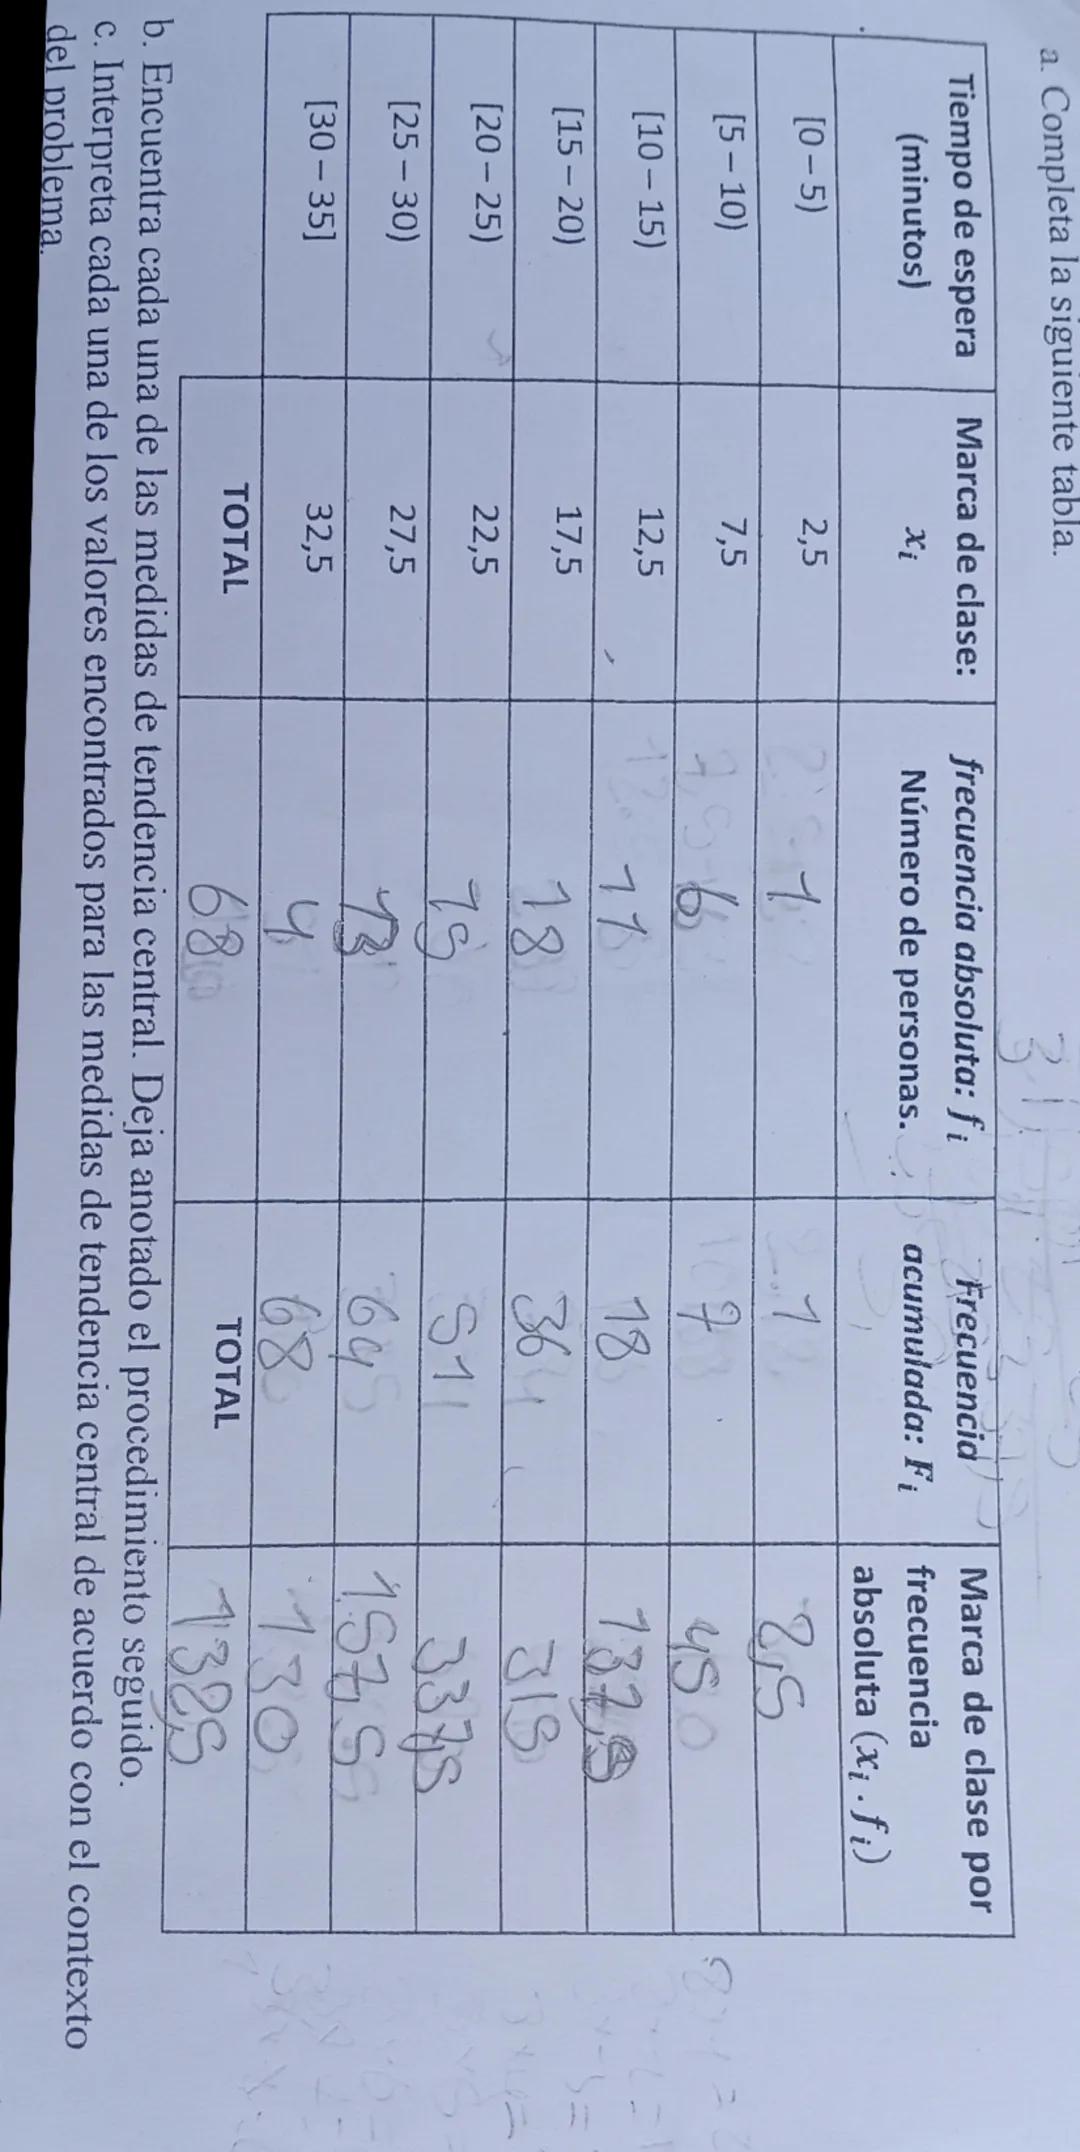 a. Completa la siguiente tabla.
Tiempo de espera (minutos) Marca de clase: xᵢ frecuencia absoluta: fᵢ Número de personas. Frecuencia acumulada: Fᵢ Marca de clase por frecuencia absoluta (xᵢ . fᵢ)
[0 – 5) 2,5 1 1 2,5
[5 – 10) 7,5 6 7 45
[10 – 15) 12,5 11 18 137,5
[15 – 20) 17,5 18 36 315
[20 – 25) 22,5 15 51 337,5
[25 – 30) 27,5 13 64 157,5
[30 – 35] 32,5 4 68 130
TOTAL 68 TOTAL 1325
b. Encuentra cada una de las medidas de tendencia central. Deja anotado el procedimiento seguido.
c. Interpreta cada una de los valores encontrados para las medidas de tendencia central de acuerdo con el contexto
del problema.